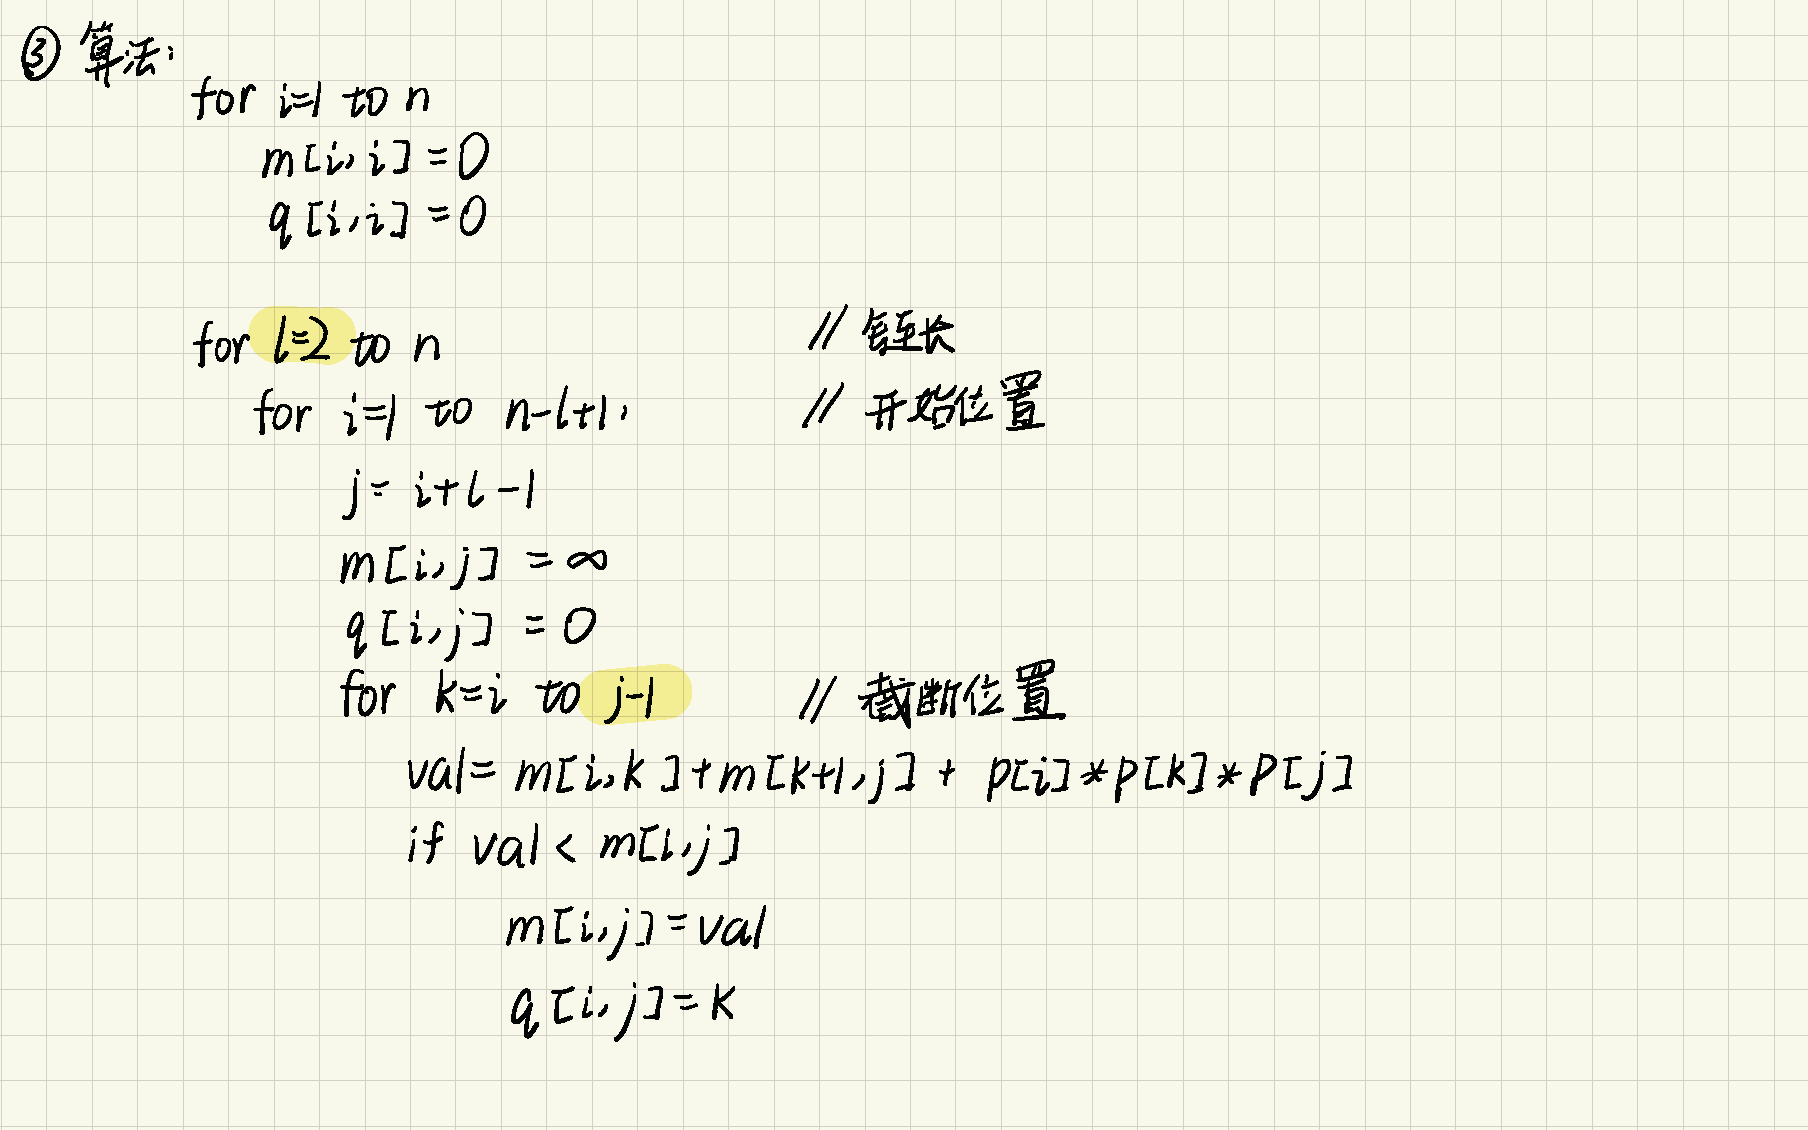 ③ 算法:
for i=1 to n
m[i,i]=0
q[i,i]=0
for l=2 to n // 链长
for i=1 to n-l+1, // 开始位置
j= i+l-1
m[i,j] = ∞
q[i,j] = 0
for k=i to j-1 // 截断位置
val= m[i,k]+m[k+1,j] + p[i]*p[k]*p[j]
if val < m[i,j]
m[i,j]=val
q[i,j]=k